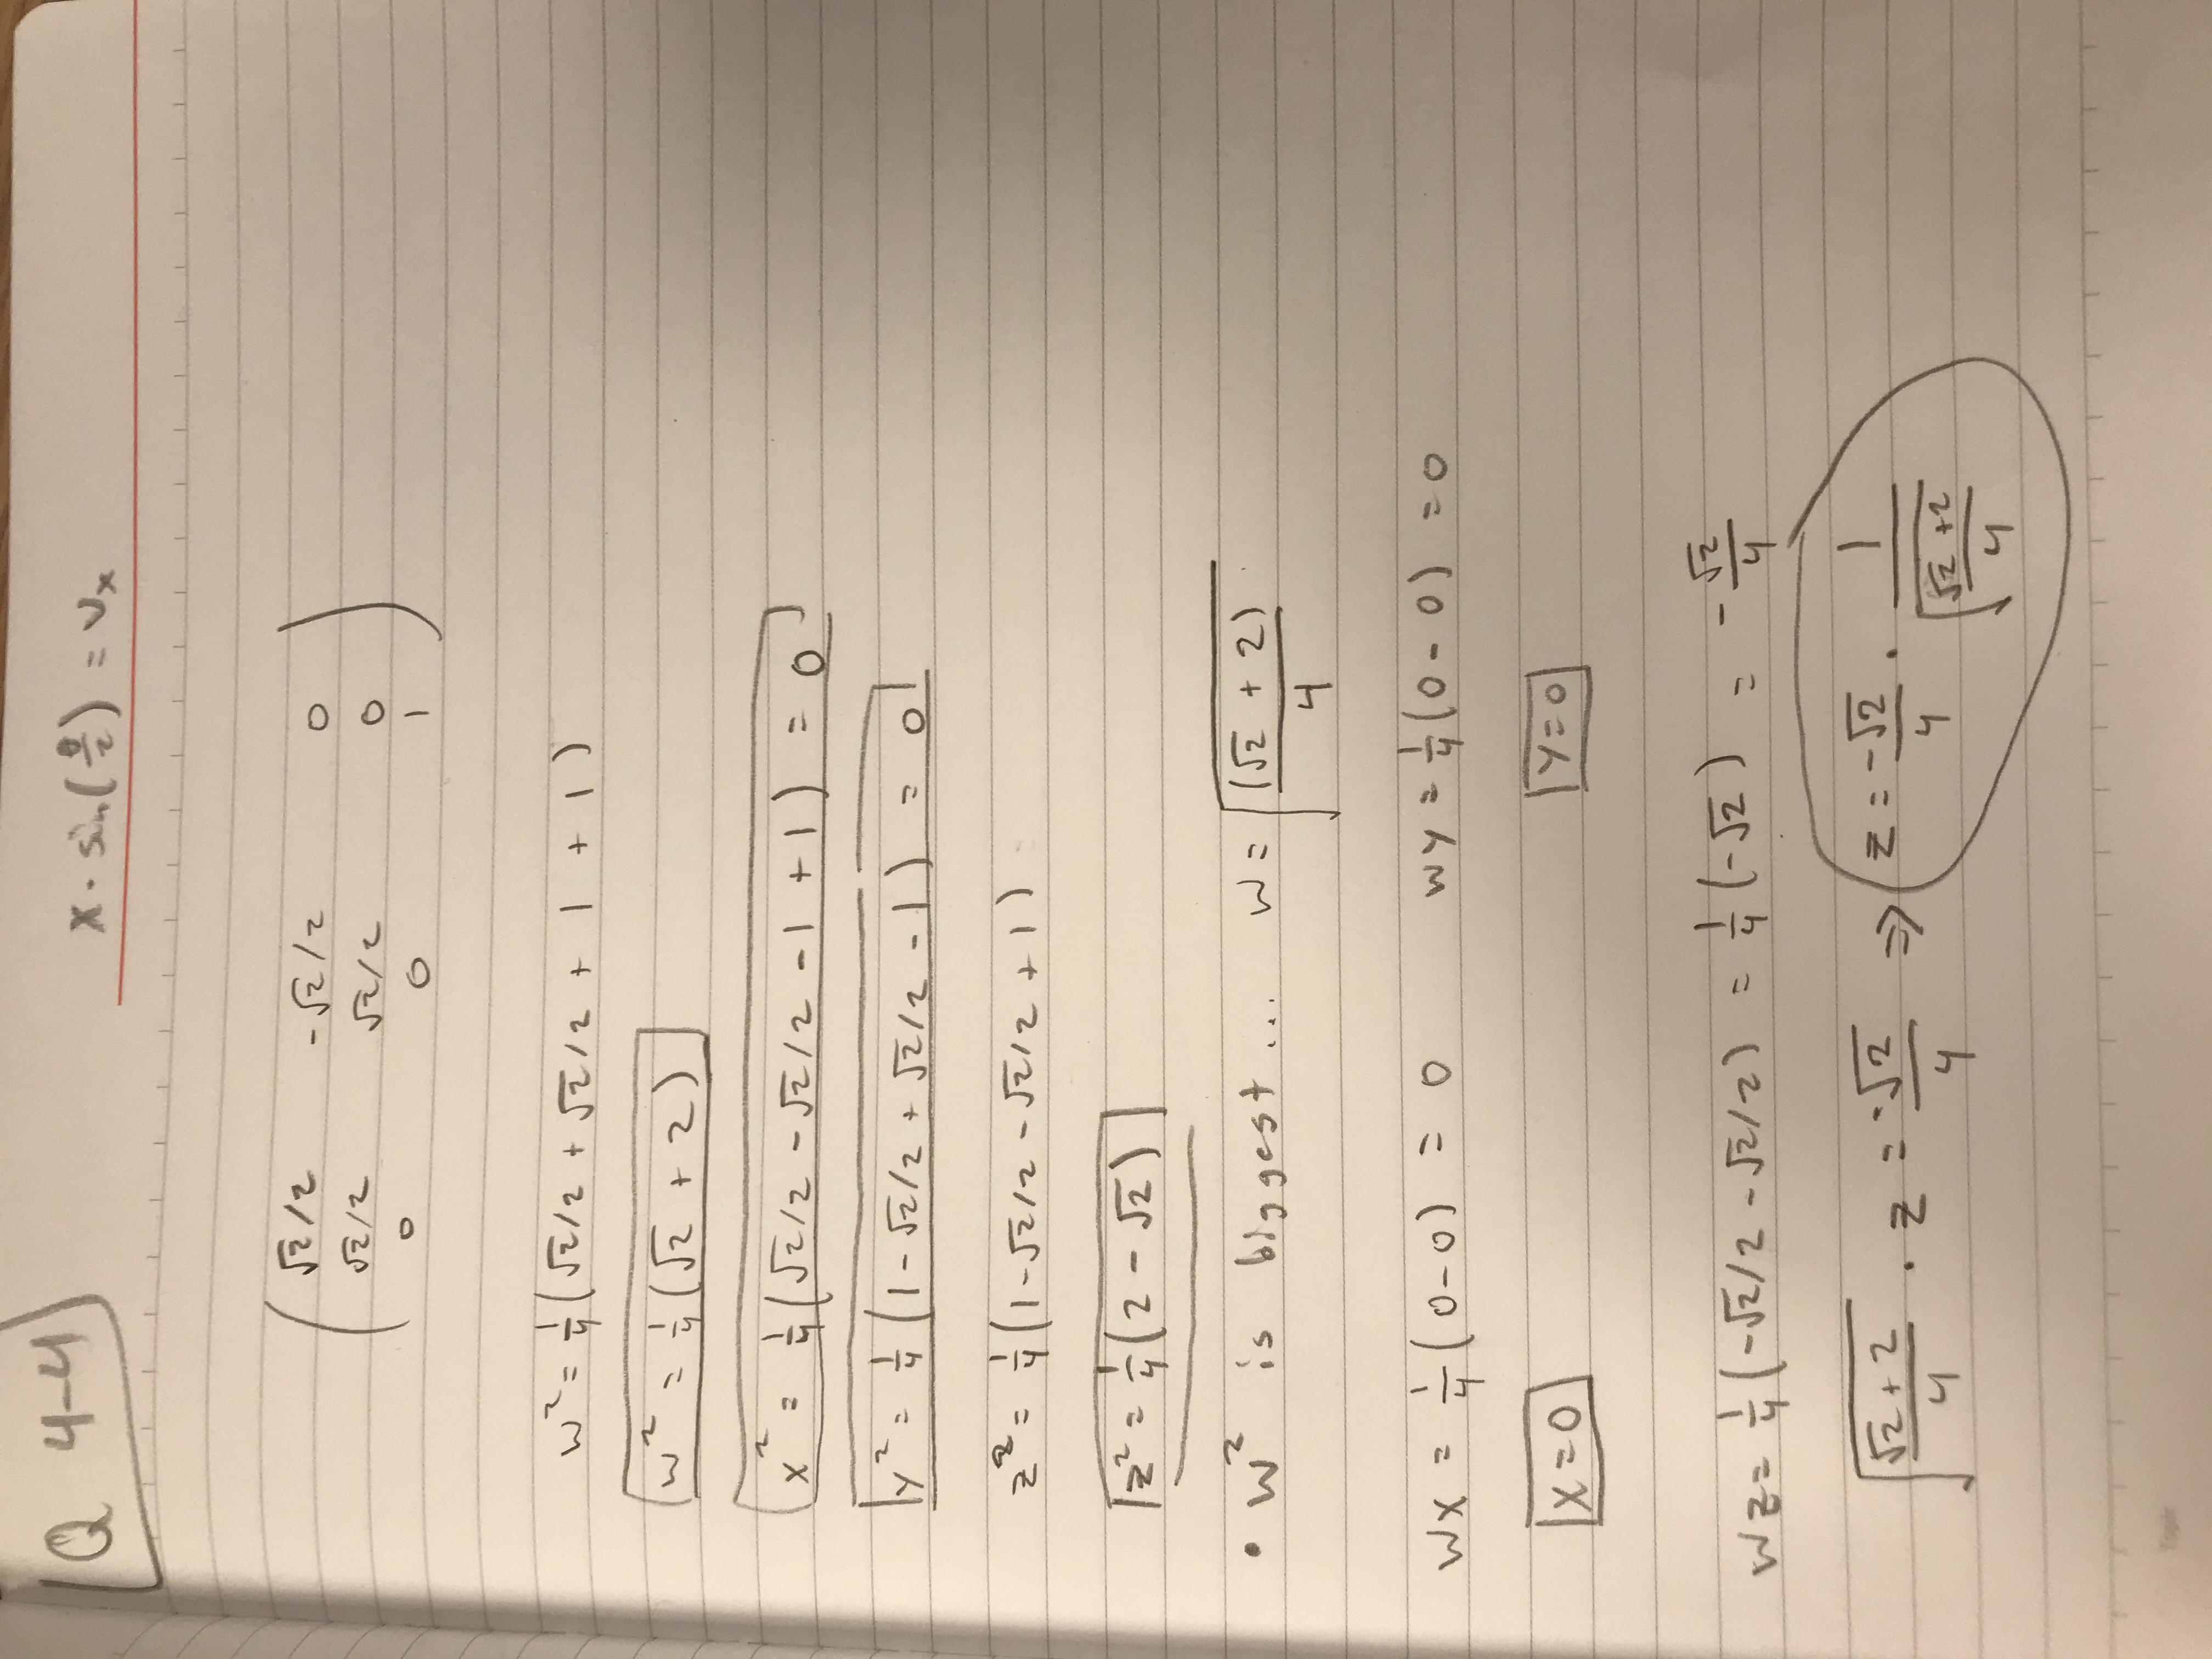 Q 4-4
x · sin(θ/2) = vx
√2/2 -√2/2 0
√2/2 √2/2 0
0 0 1
w² = 1/4(√2/2 + √2/2 + 1 + 1)
w² = 1/4(√2 + 2)
x² = 1/4(√2/2 - √2/2 - 1 + 1) = 0
y² = 1/4(1 - √2/2 + √2/2 - 1) = 0
z² = 1/4(1 - √2/2 - √2/2 + 1)
z² = 1/4(2 - √2)
• w² is biggest... w = √((√2 + 2)/4)
wx = 1/4(0-0) = 0 wy = 1/4(0-0) = 0
x = 0 y = 0
wz = 1/4(-√2/2 - √2/2) = 1/4(-√2) = -√2/4
√((√2 + 2)/4) · z = -√2/4 ⇒ z = -√2/4 · 1/√((√2 + 2)/4)
Topic